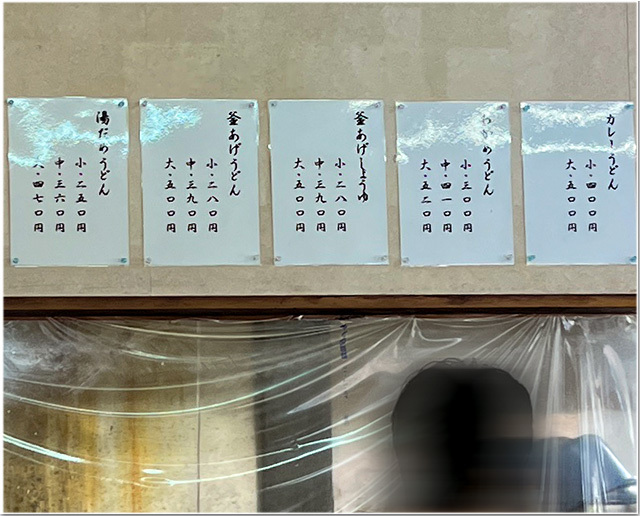 カレーうどん
小・四〇〇円
大・五〇〇円
わかめうどん
小・三〇〇円
中・四一〇円
大・五二〇円
釜あげしょうゆ
小・二八〇円
中・三九〇円
大・五〇〇円
釜あげうどん
小・二八〇円
中・三九〇円
大・五〇〇円
湯だめうどん
小・二五〇円
中・三六〇円
大・四七〇円